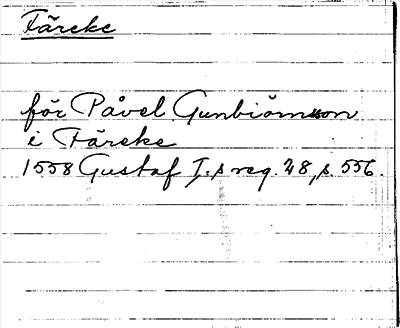 Färeke
för Påvel Gunbiörnsson
i Färeke
1558 Gustaf I.s reg. 28, s. 556.